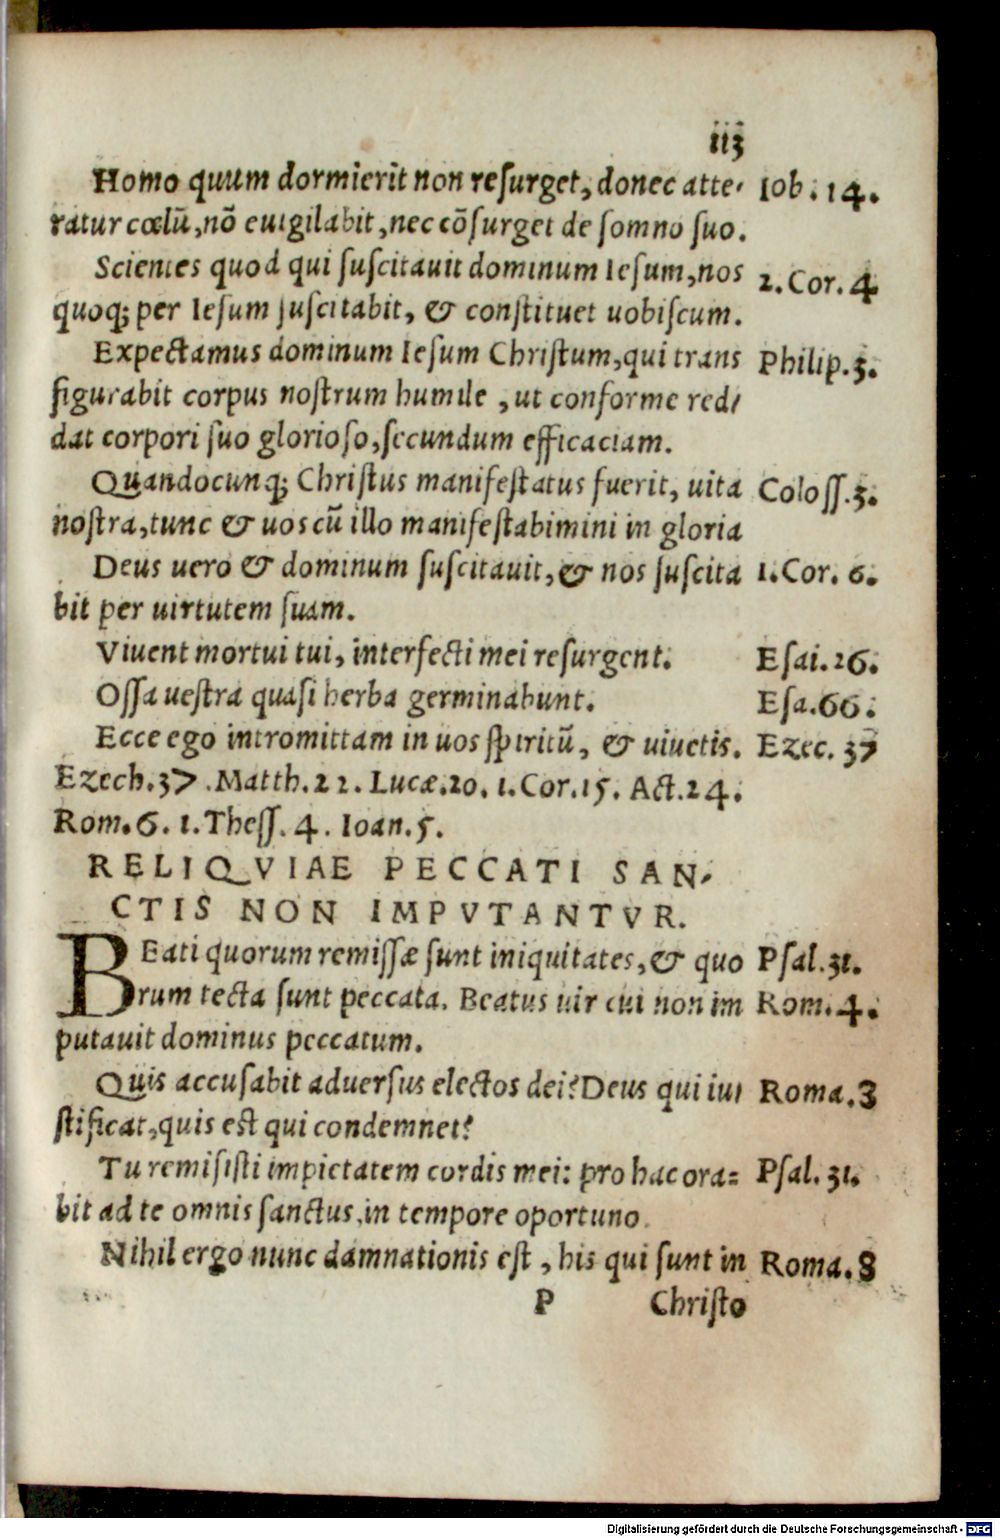 113
Homo quum dormierit non resurget, donec atte- Iob. 14.
ratur cœlū, nō euigilabit, nec cōsurget de somno suo.
Scientes quod qui suscitauit dominum Iesum, nos 2. Cor. 4
quoq; per Iesum suscitabit, & constituet uobiscum.
Expectamus dominum Iesum Christum, qui trans Philip. 3.
figurabit corpus nostrum humile, ut conforme red-
dat corpori suo glorioso, secundum efficaciam.
Quandocunq; Christus manifestatus fuerit, uita Coloss. 3.
nostra, tunc & uos cū illo manifestabimini in gloria
Deus uero & dominum suscitauit, & nos suscita 1. Cor. 6.
bit per uirtutem suam.
Viuent mortui tui, interfecti mei resurgent. Esai. 26.
Ossa uestra quasi herba germinabunt. Esa. 66.
Ecce ego intromittam in uos spiritū, & uiuetis. Ezec. 37
Ezech. 37. Matth. 22. Lucæ. 20. 1. Cor. 15. Act. 24.
Rom. 6. 1. Thess. 4. Ioan. 5.
RELIQVIAE PECCATI SAN-
CTIS NON IMPVTANTVR.
BEati quorum remissæ sunt iniquitates, & quo Psal. 31.
rum tecta sunt peccata. Beatus uir cui non im Rom. 4.
putauit dominus peccatum.
Quis accusabit aduersus electos dei? Deus qui iu- Roma. 8
stificat, quis est qui condemnet?
Tu remisisti impietatem cordis mei: pro hac ora= Psal. 31.
bit ad te omnis sanctus, in tempore oportuno.
Nihil ergo nunc damnationis est, his qui sunt in Roma. 8
P Christo
Digitalisierung gefördert durch die Deutsche Forschungsgemeinschaft - DFG